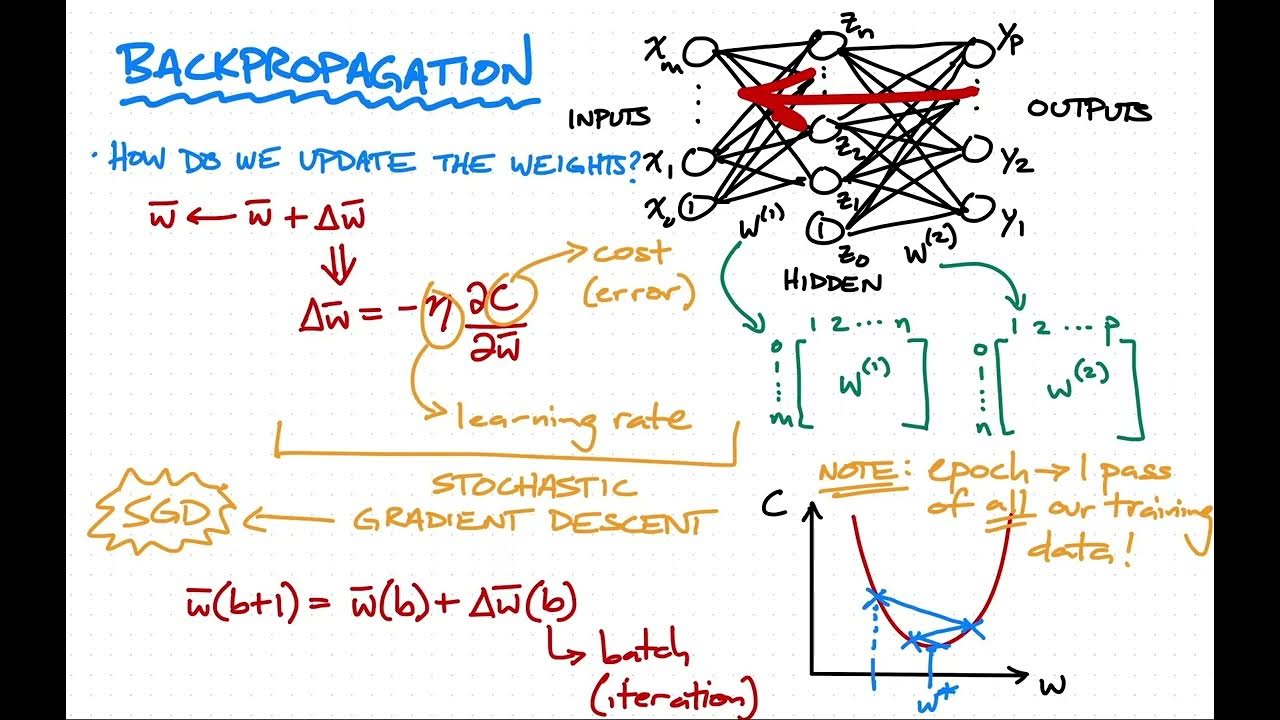 BACKPROPAGATION
· HOW DO WE UPDATE THE WEIGHTS?
w̄ ← w̄ + Δw̄
⇓
Δw̄ = - η ∂C / ∂w̄
cost
(error)
learning rate
STOCHASTIC
GRADIENT DESCENT
SGD
w̄(b+1) = w̄(b) + Δw̄(b)
batch
(iteration)
INPUTS
x_m
x_1
x_0
1
z_n
z_2
z_1
1
z_0
HIDDEN
y_p
y_2
y_1
OUTPUTS
W^(1)
W^(2)
1 2 ... n
0
1
⋮
m
W^(1)
1 2 ... p
0
1
⋮
n
W^(2)
NOTE: epoch → 1 pass
of all our training
data!
C
w
w*